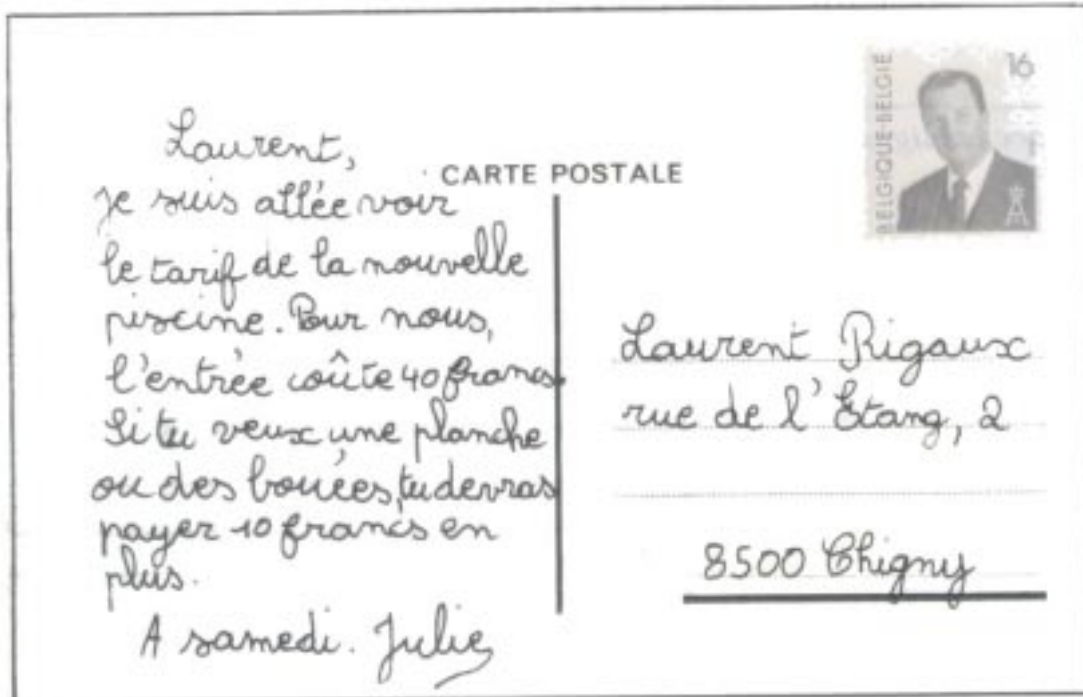 BELGIQUE-BELGIË
16
CARTE POSTALE
Laurent,
je suis allée voir
le tarif de la nouvelle
piscine. Pour nous,
l'entrée coûte 40 francs.
Si tu veux une planche
ou des bouées, tu devras
payer 10 francs en
plus.
A samedi. Julie
Laurent Rigaux
rue de l'Etang, 2
8500 Chigny